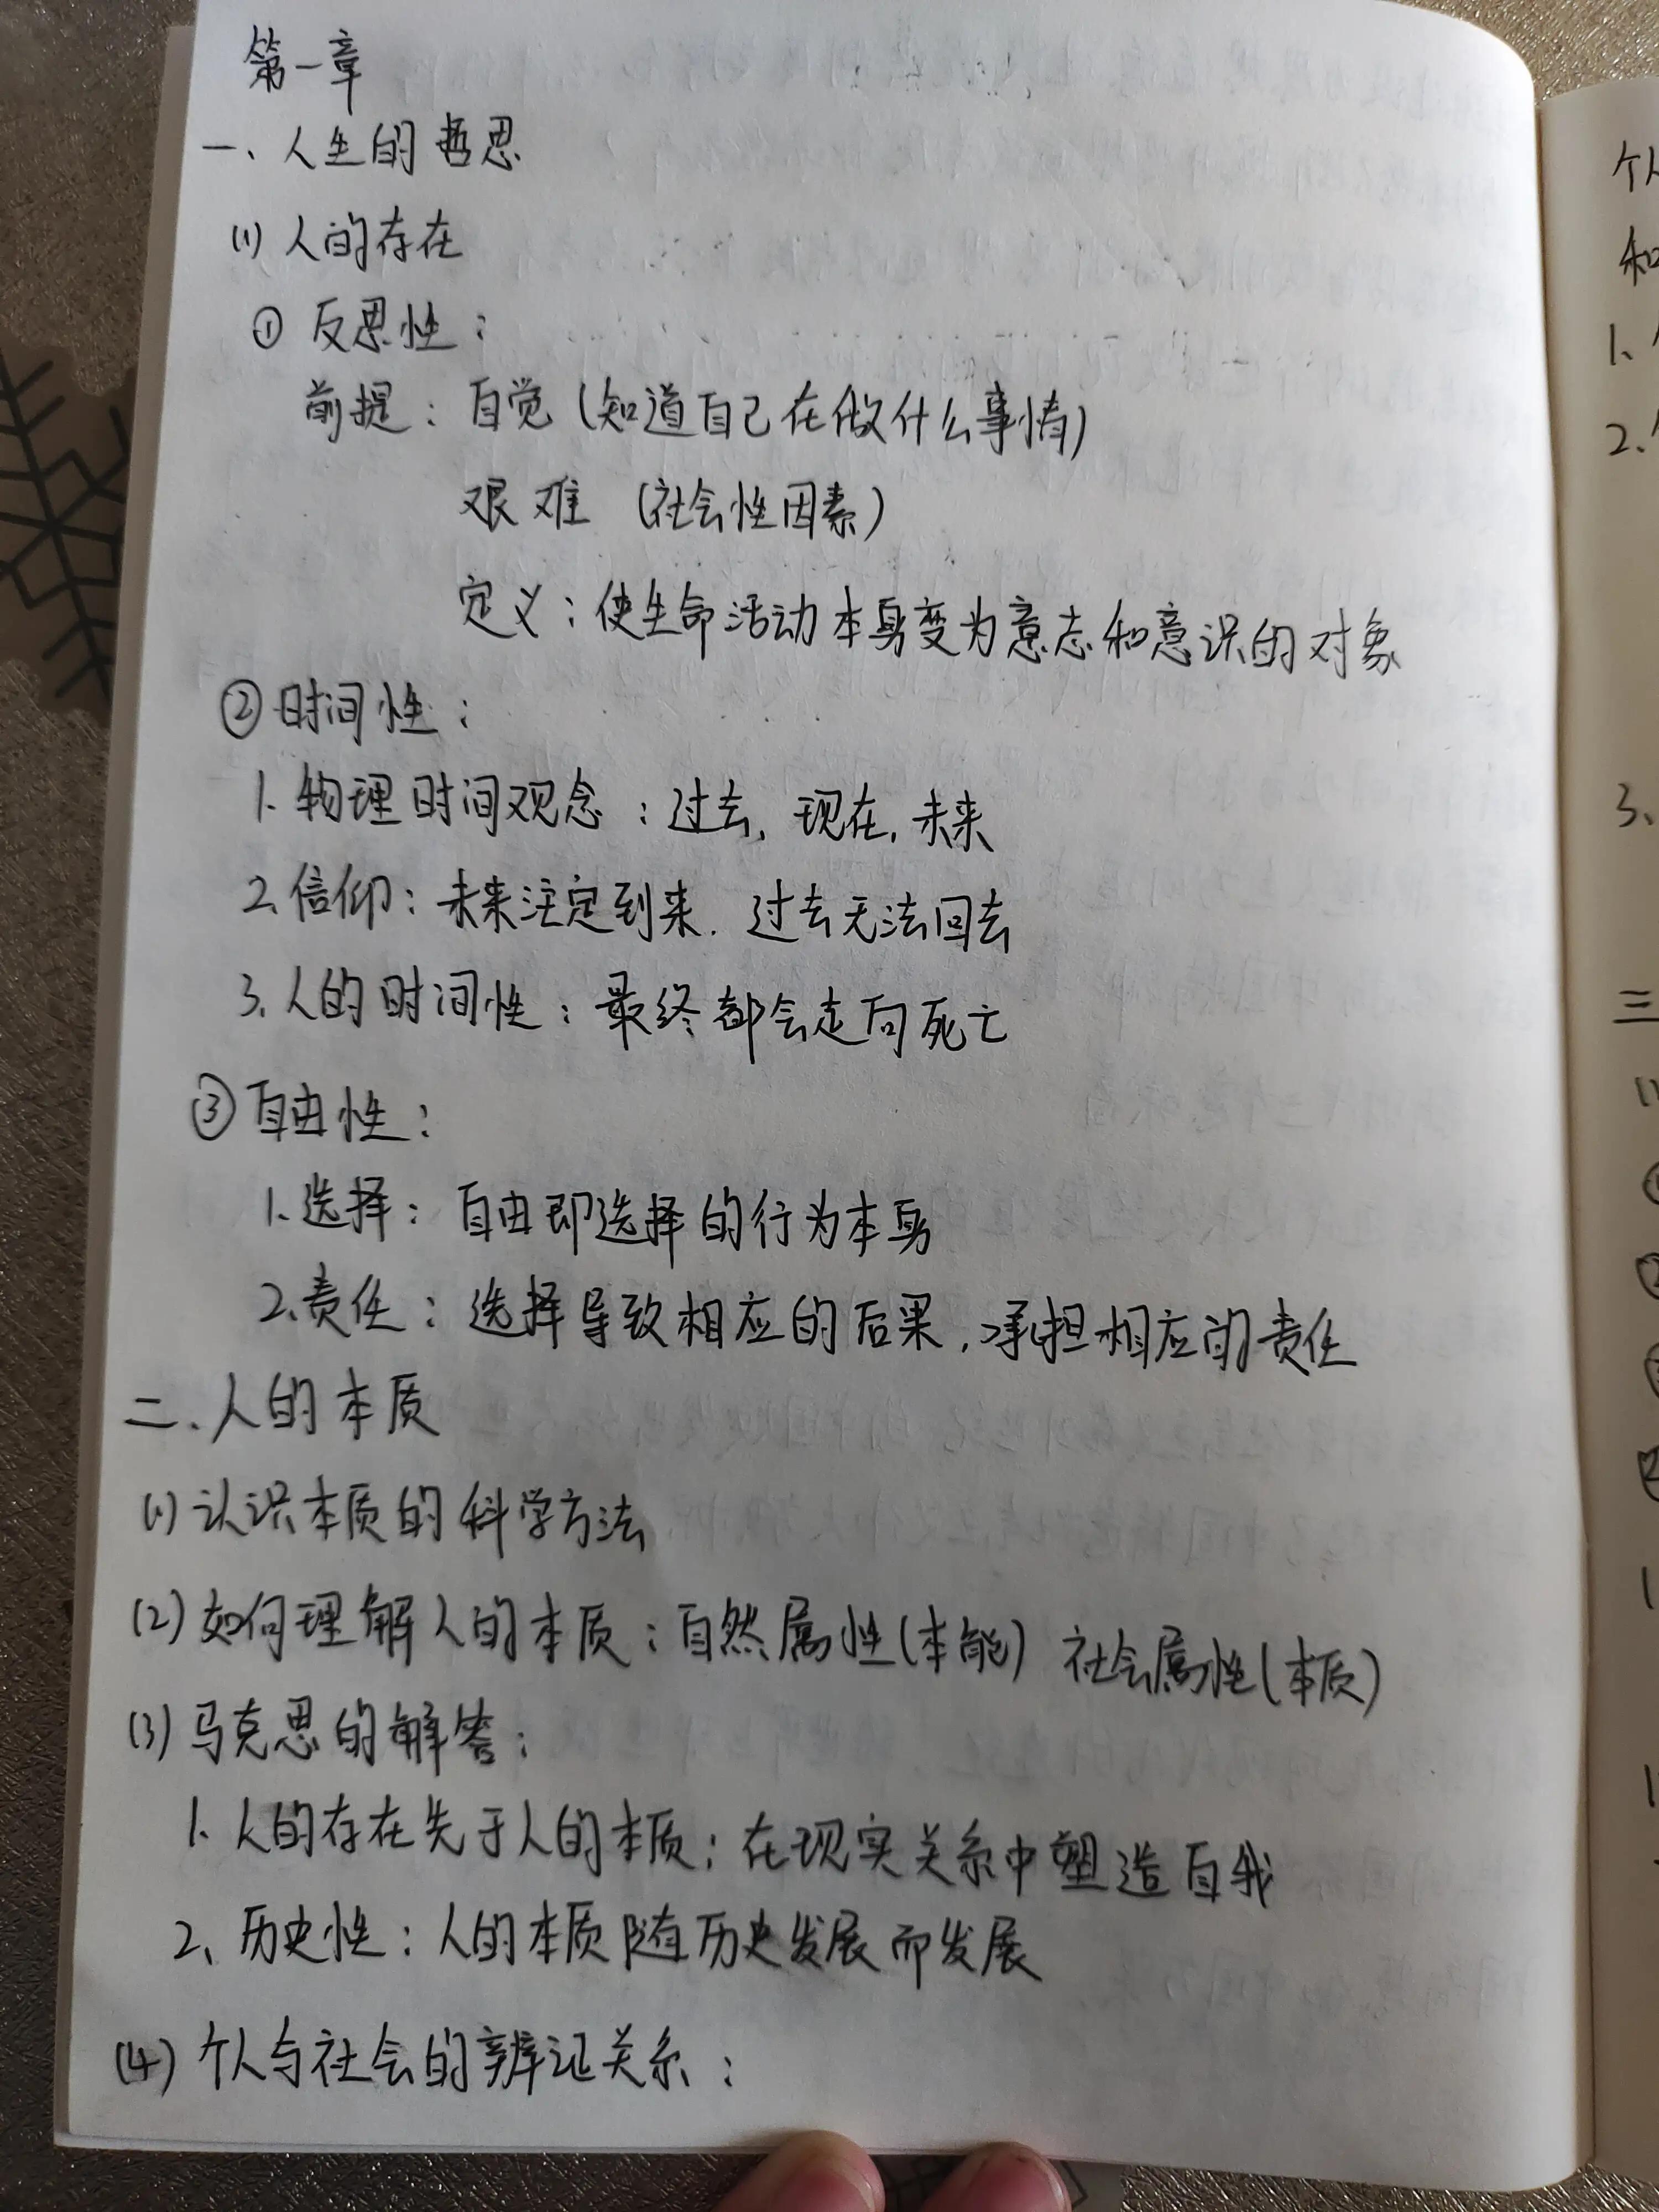 第一章
一、人生的哲思
(1) 人的存在
① 反思性：
前提：自觉（知道自己在做什么事情）
艰难（社会性因素）
定义：使生命活动本身变为意志和意识的对象
② 时间性：
1. 物理时间观念：过去，现在，未来
2. 信仰：未来注定到来．过去无法回去
3. 人的时间性：最终都会走向死亡
③ 自由性：
1. 选择：自由即选择的行为本身
2. 责任：选择导致相应的后果，承担相应的责任
二、人的本质
(1) 认识本质的科学方法
(2) 如何理解人的本质：自然属性（本能） 社会属性（本质）
(3) 马克思的解答：
1. 人的存在先于人的本质：在现实关系中塑造自我
2、历史性：人的本质随历史发展而发展
(4) 个人与社会的辨证关系：
个
和
1、
2.
3、
三